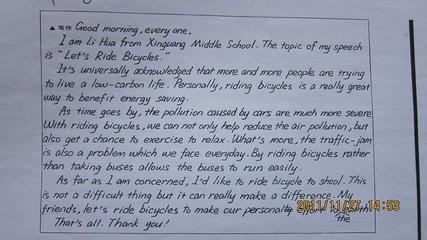 ▲写作 Good morning, every one,
I am Li Hua from Xinguang Middle School. The topic of my speech
is "Let's Ride Bicycles.
It's universally acknowledged that more and more people are trying
to live a low-carbon life. Personally, riding bicycles is a really great
way to benefit energy saving.
As time goes by, the pollution caused by cars are much more severe
With riding bicycles, we can not only help reduce the air pollution, but
also get a chance to exercise to relax. What's more, the traffic-jam
is also a problem which we face everyday. By riding bicycles rather
than taking buses allows the buses to run easily.
As far as I am concerned, I'd like to ride bicycle to shool. This
is not a difficult thing but it can really make a difference. My
friends, let's ride bicycles to make our personally effort to
the
That's all. Thank you!
2011/11/27 14:53